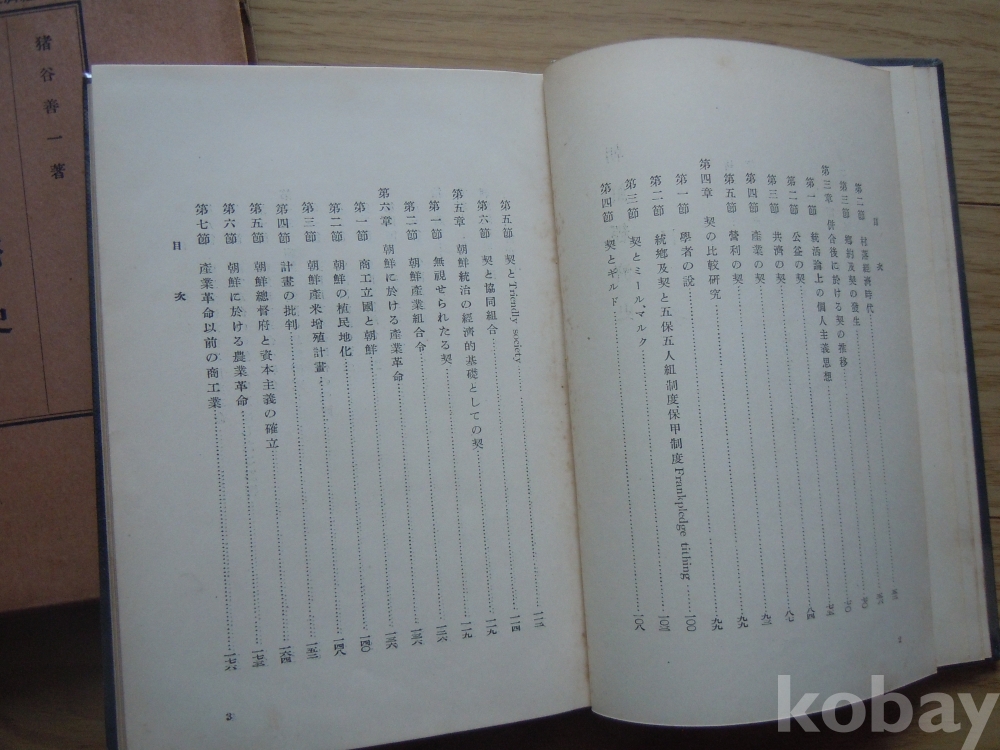 猪谷善一著
史
目次
第二節 村落經濟時代
第三節 鄕約及契の發生
第三章 併合後に於ける契の推移
第一節 統治論上の個人主義思想
第二節 公益の契
第三節 共濟の契
第四節 產業の契
第五節 營利の契
第四章 契の比較硏究
第一節 學者の說 一〇〇
第二節 統鄕及契と五保五人組制度保甲制度Frankpledge tithing
第三節 契とミール、マルク
第四節 契とギルド 一〇八
2
第五節 契とTriendly society
第六節 契と協同組合 一一四
第五章 朝鮮統治の經濟的基礎としての契 一一九
第一節 無視せられたる契
第二節 朝鮮產業組合令
第六章 朝鮮に於ける產業革命
第一節 商工立國と朝鮮 一四〇
第二節 朝鮮の植民地化 一四八
第三節 朝鮮產米增殖計畫
第四節 計畫の批判
第五節 朝鮮總督府と資本主義の確立
第六節 朝鮮に於ける農業革命
第七節 產業革命以前の商工業 一七六
目次
3
kobay